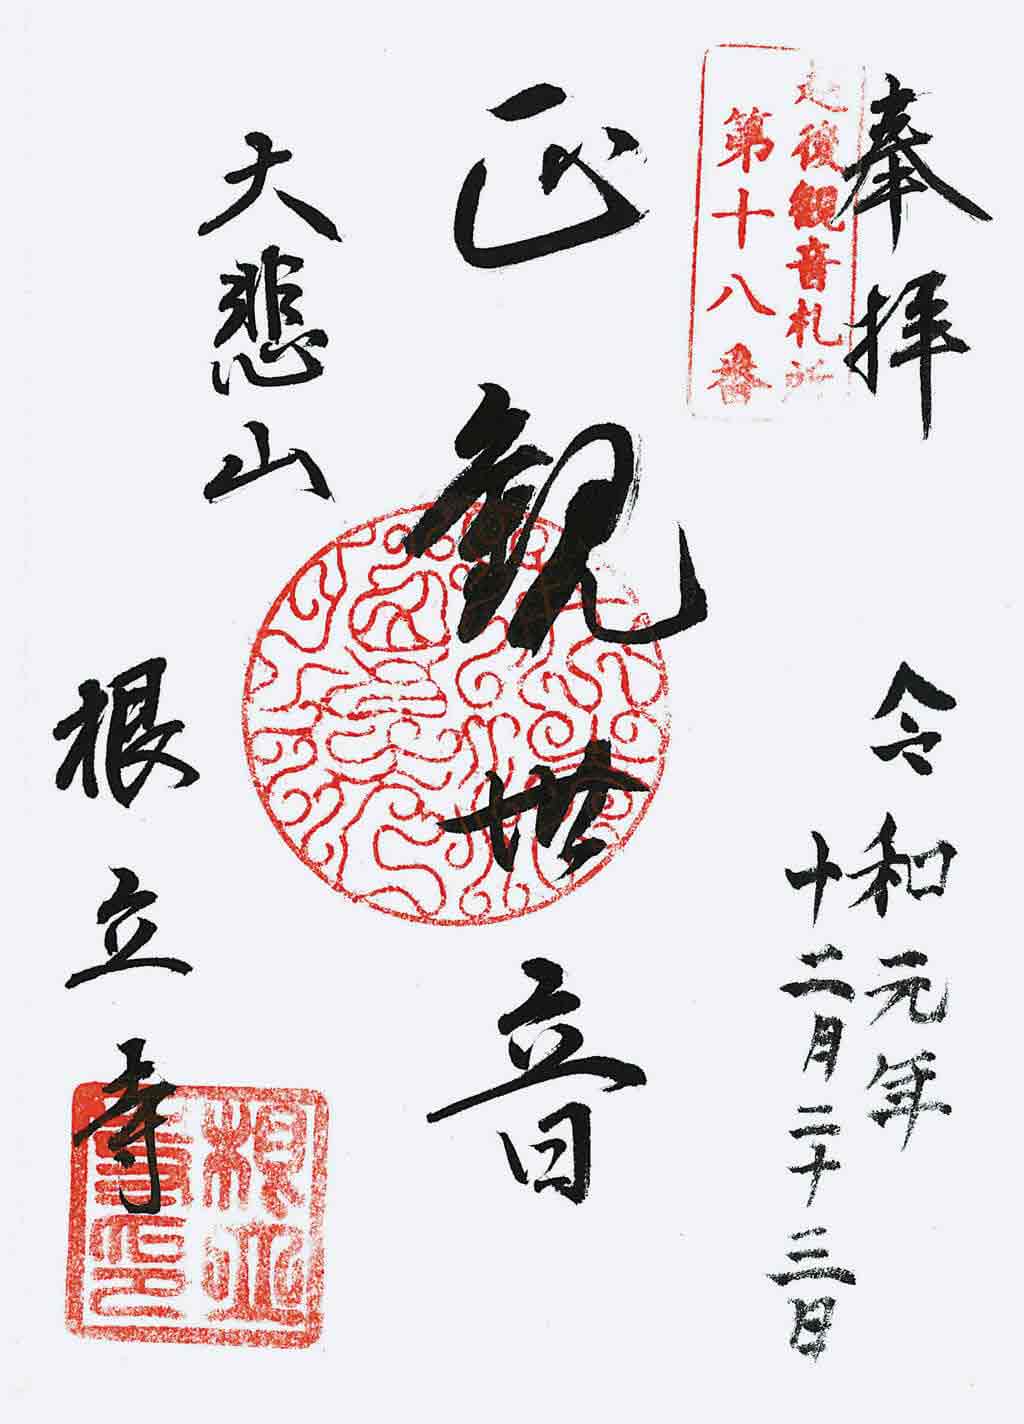 奉拝
越後観音札所
第十八番
令和元年
十二月二十三日
正観世音
大悲山
根立寺
根立
寺印